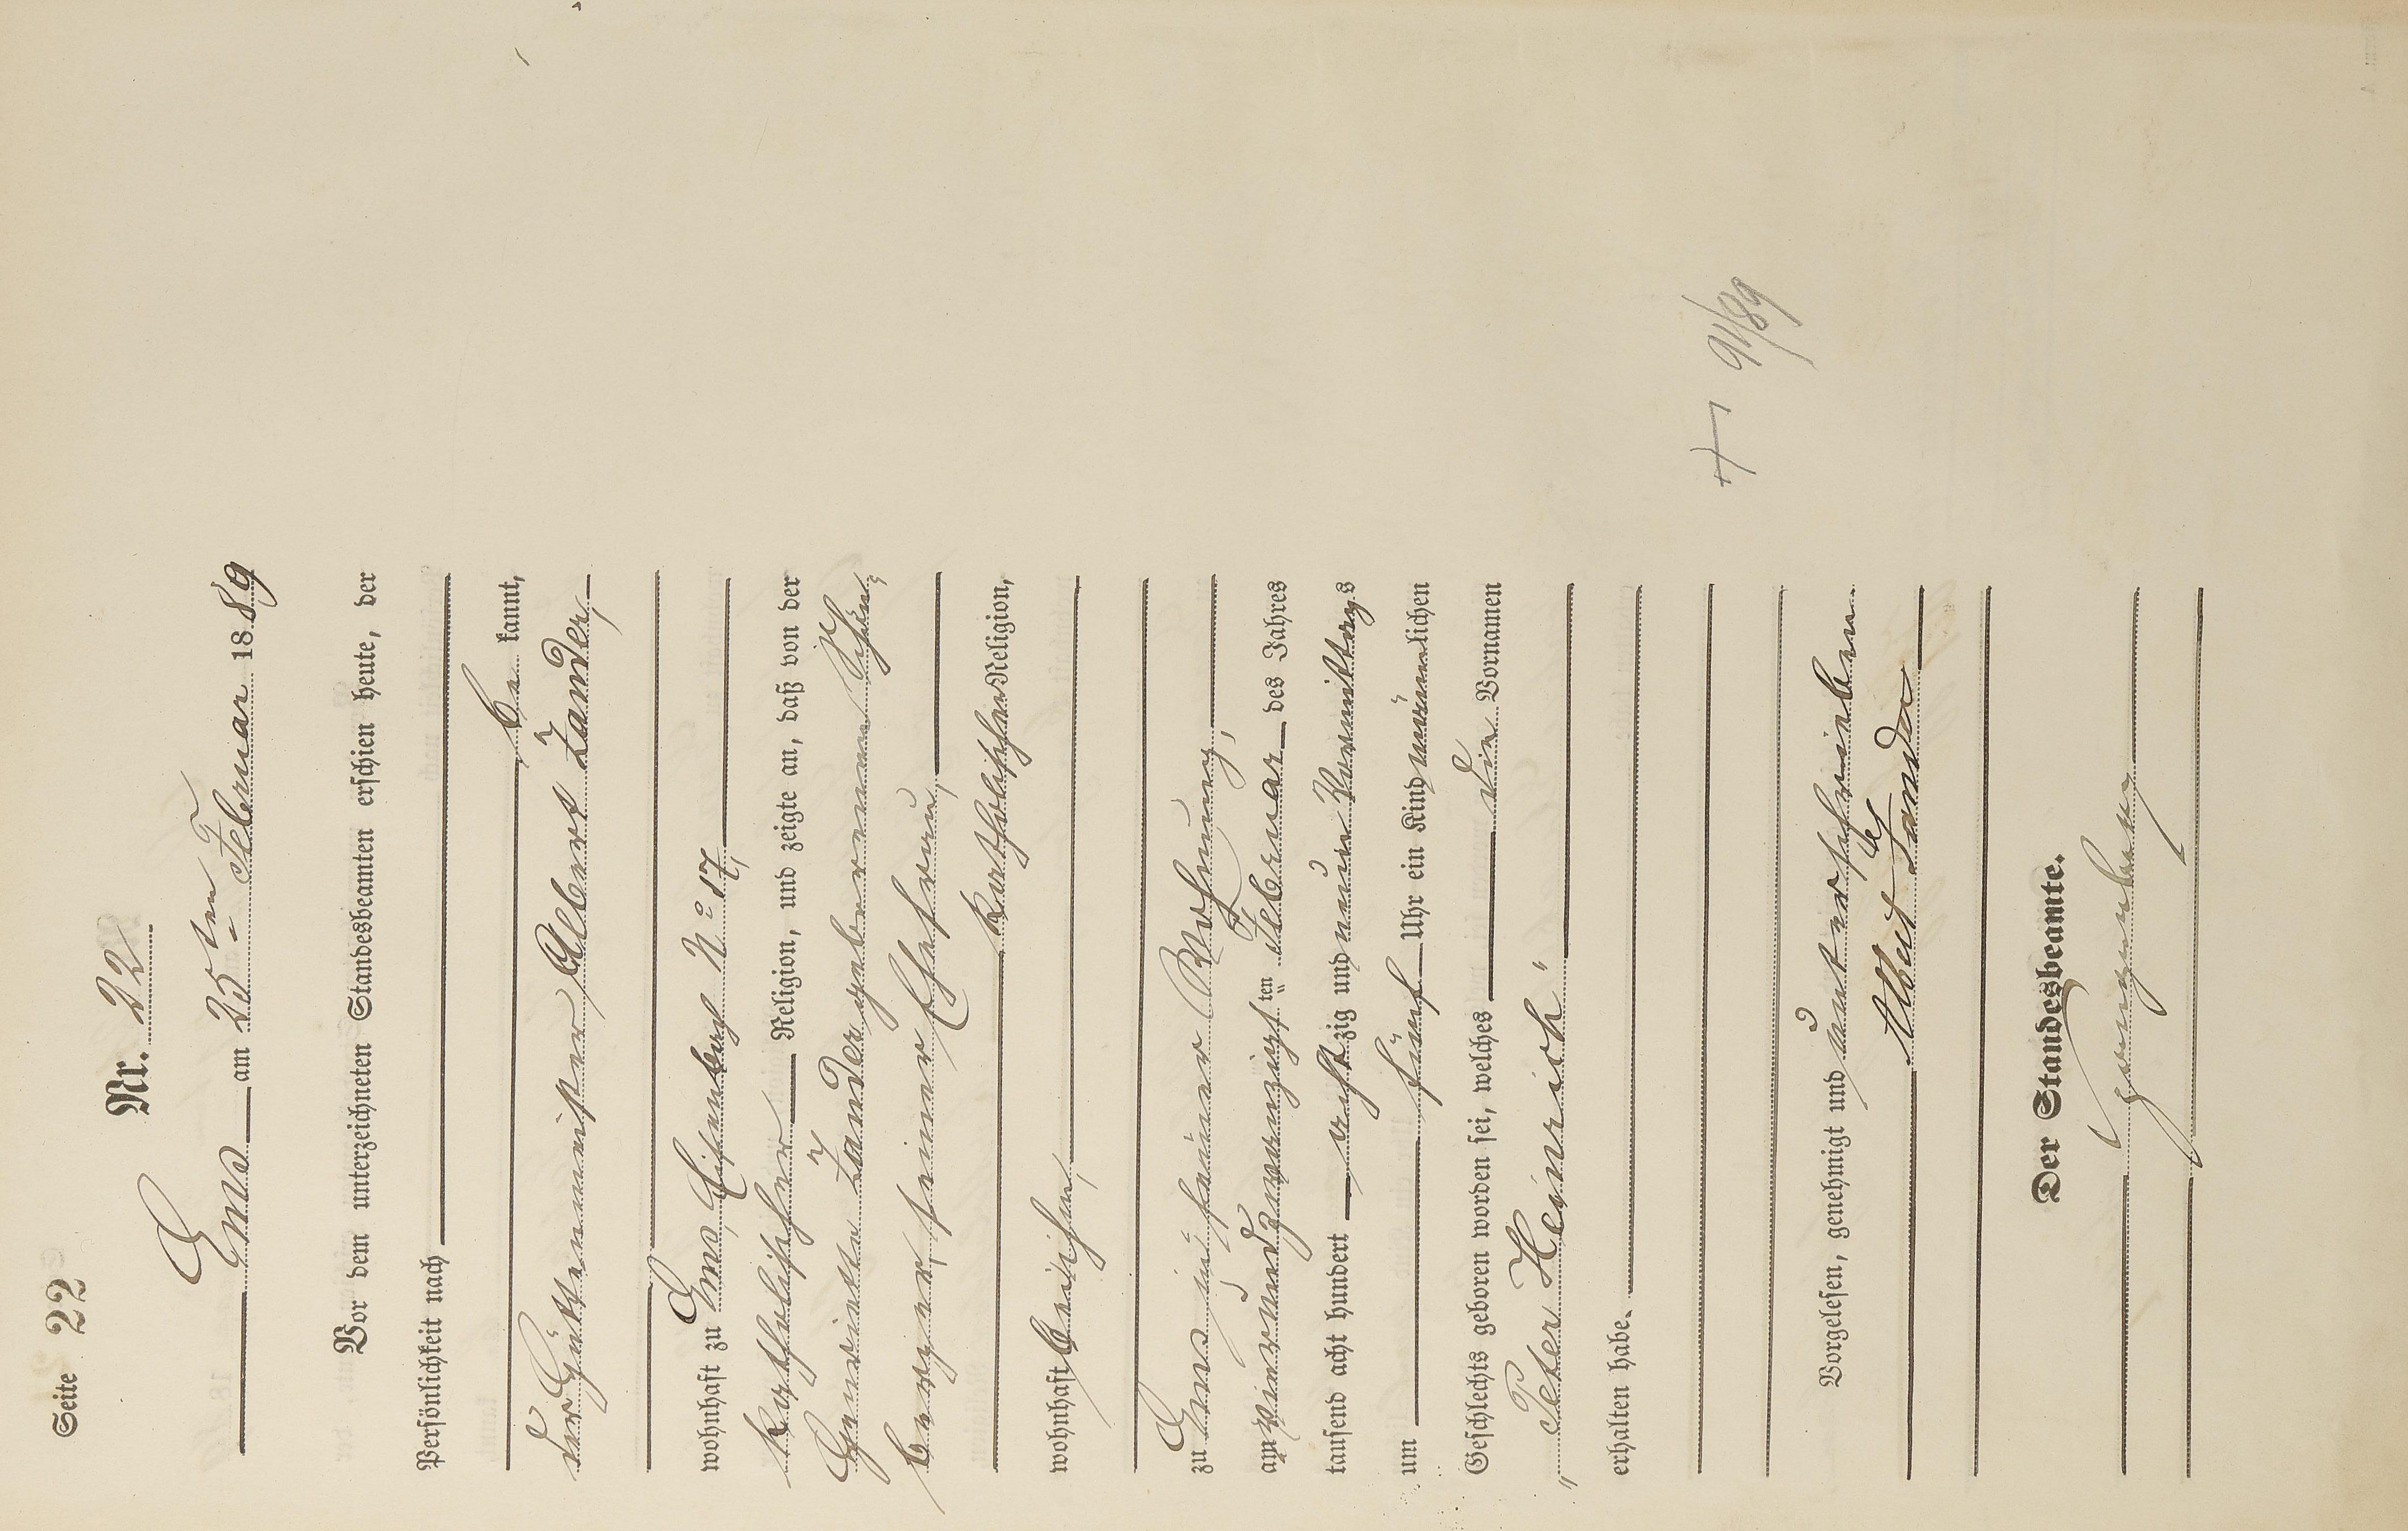 Seite 22
Nr. 22
Ems am 25ten Februar 1889
Vor dem unterzeichneten Standesbeamten erschien heute, der
Persönlichkeit nach
be kannt,
der Hüttenmeister Albert Zander,
wohnhaft zu Ems, Eisenbach No 17,
katholischer Religion, und zeigte an, daß von der
Henriette Zander geborenen Schön⸗
berger, seiner Ehefrau,
katholischer Religion,
wohnhaft bei ihm,
zu Ems in seiner Wohnung,
am vierundzwanzigsten Februar des Jahres
tausend acht hundert achtzig und neun Vormittags
um fünf Uhr ein Kind männlichen
Geschlechts geboren worden sei, welches die Vornamen
"Peter Heinrich"
erhalten habe.
+ 91/89
Vorgelesen, genehmigt und unterschrieben
Albert Zander
Der Standesbeamte.